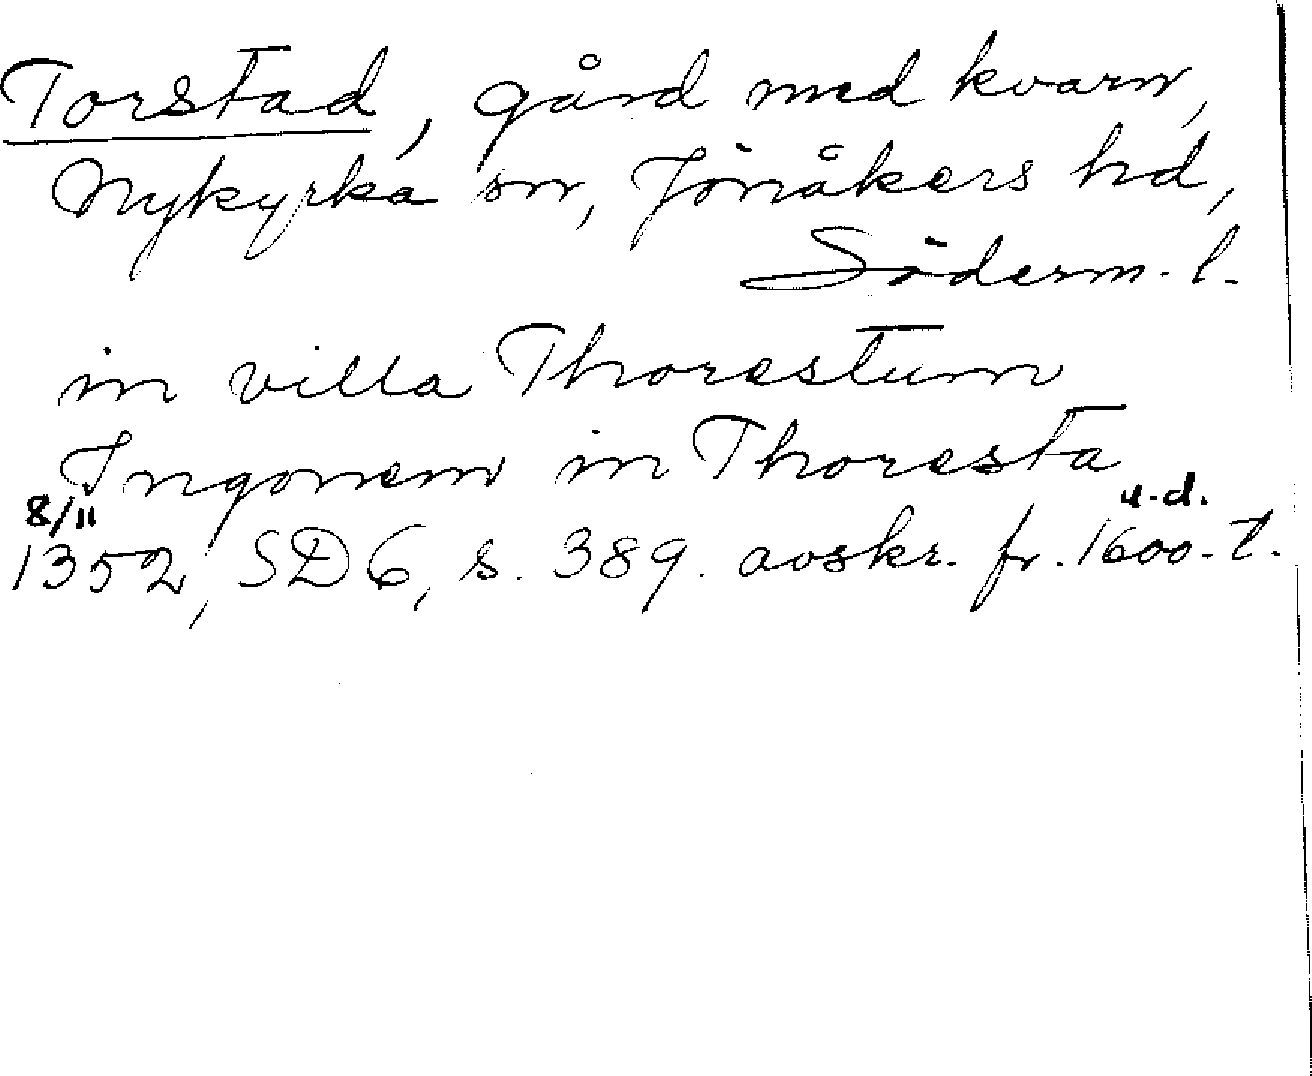 Torstad, gård med kvarn,
Nykyrka sn, Jönåkers hd,
Söderm. l.
in villa Thorestum
Ingonem in Thoresta
8/11 u.d.
1352, SD 6, s. 389. avskr. fr. 1600-t.